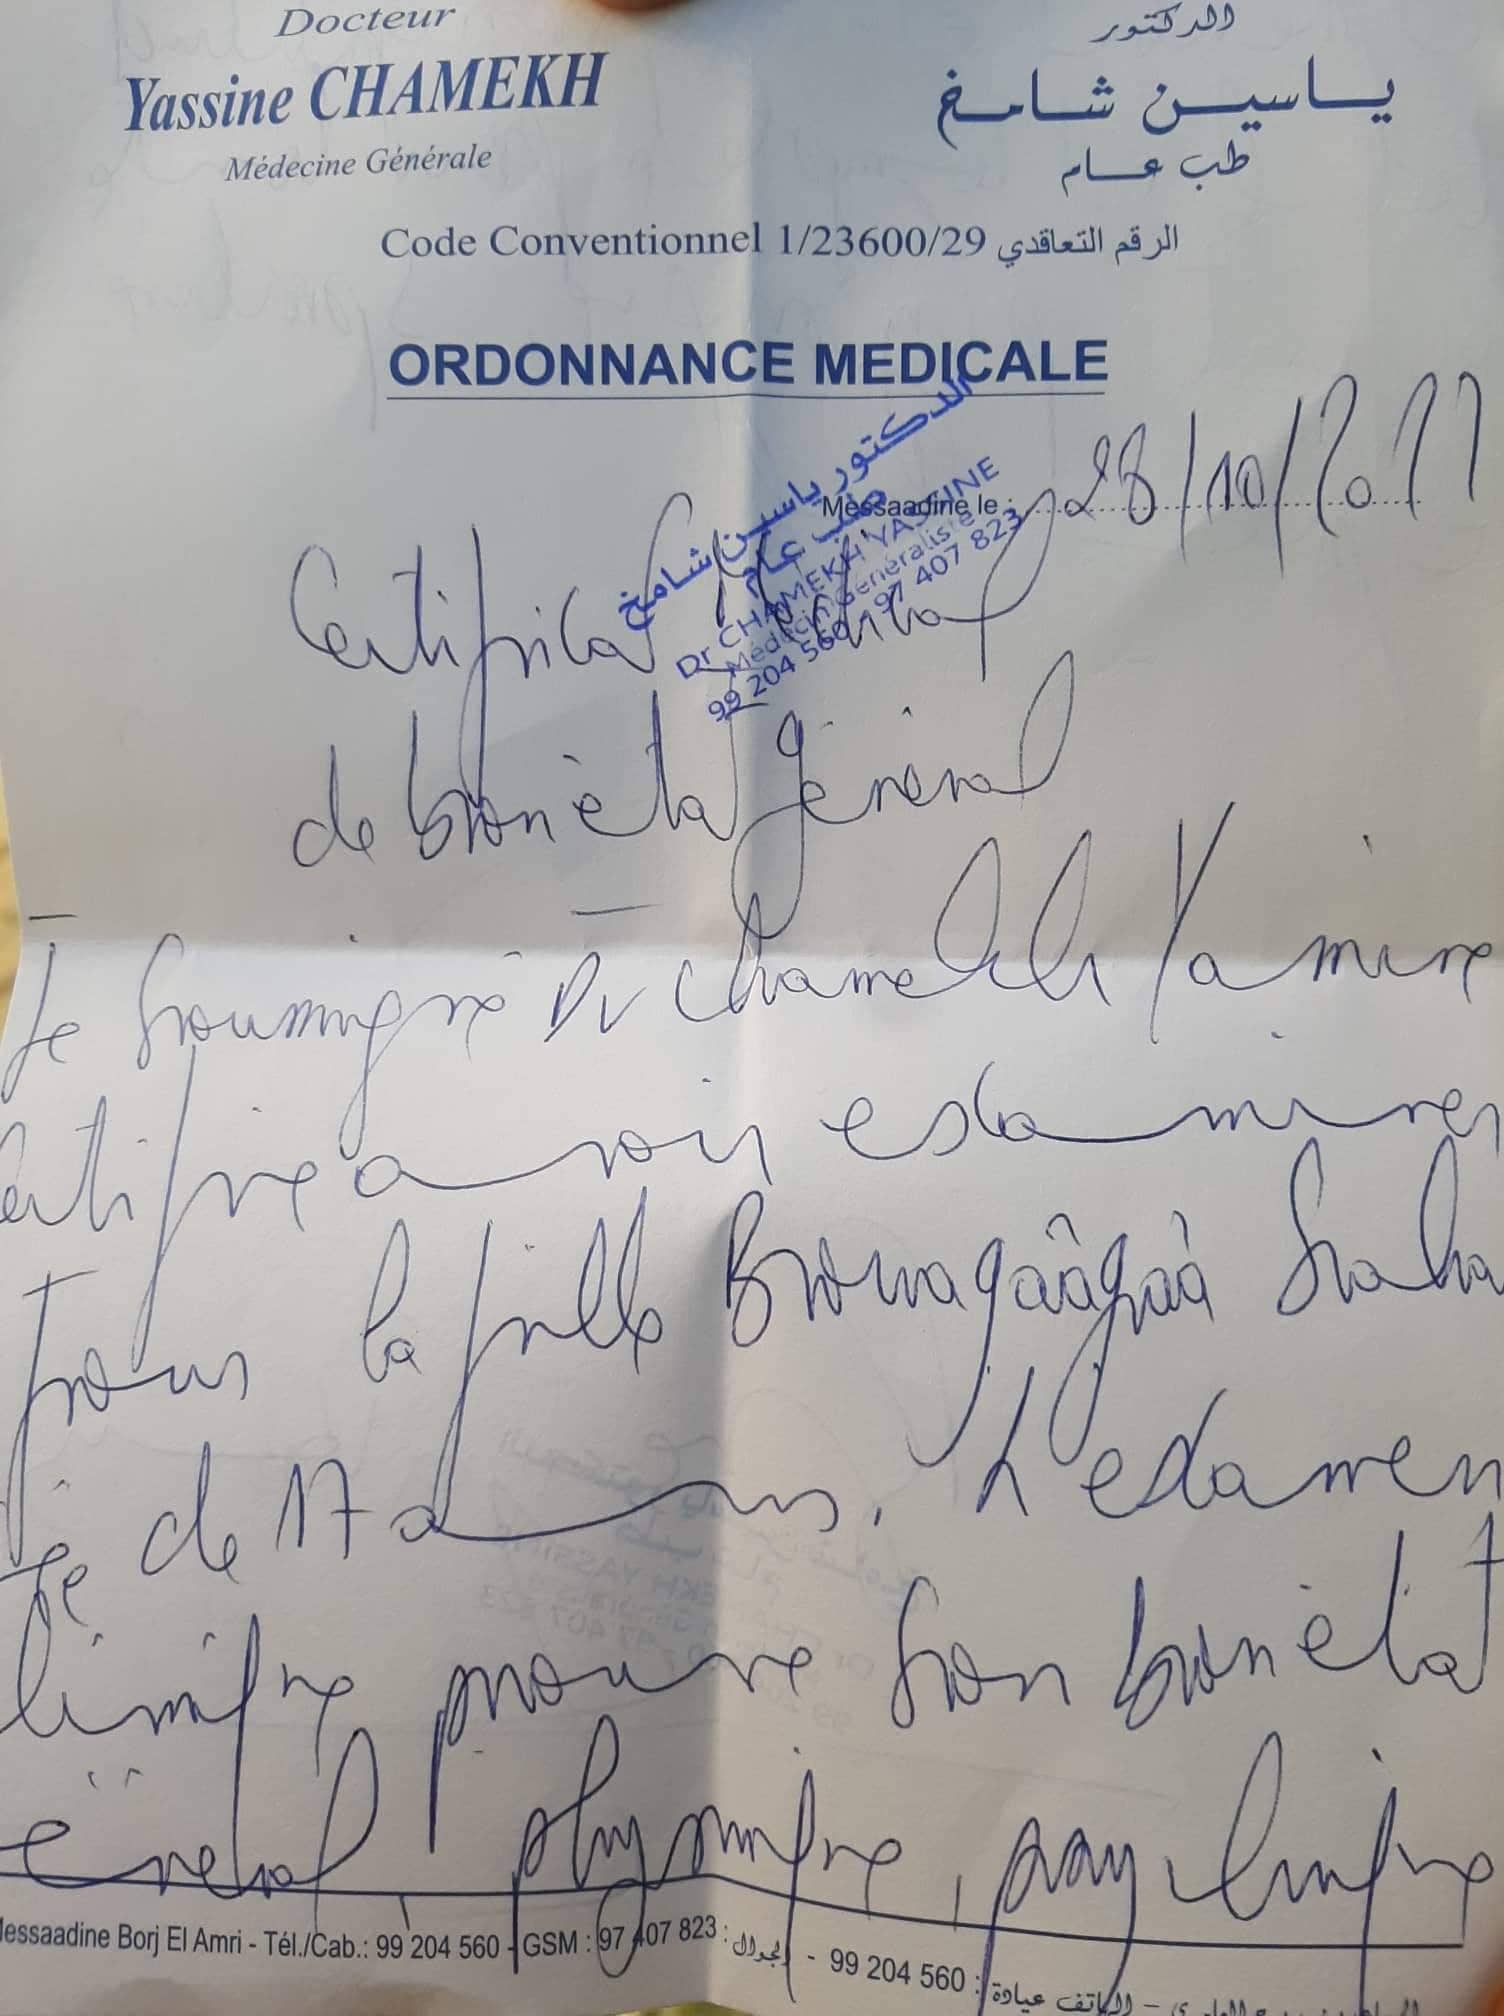 Docteur
Yassine CHAMEKH
Médecine Générale
الدكتور
ياسين شامخ
طب عام
Code Conventionnel 1/23600/29 الرقم التعاقدي
ORDONNANCE MEDICALE
Messaadine le : 28/10/2022
الدكتور ياسين شامخ
طب عام
Dr CHAMEKH YASSINE
Médecin Généraliste
99 204 560 / 97 407 823
Certificat Médical
de bon état général
Je soussigné Dr Chamekh Yassine
certifie avoir examiner
la fille Bouagâagâa
de 17 ans. L'examen
clinique prouve son bon état
général physique, psychique
Messaadine Borj El Amri - Tél./Cab.: 99 204 560 - GSM : 97 407 823 : الجوال - 99 204 560 : الهاتف عيادة